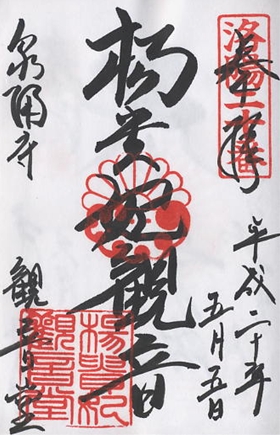 奉拝
洛陽二十番
平成二十年
五月五日
楊貴妃観音
泉涌寺
観音堂
楊貴妃
観音堂